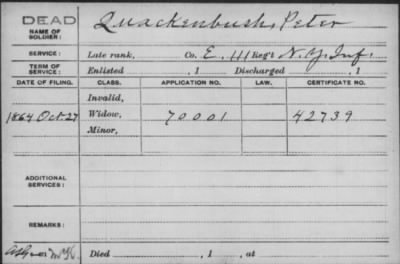 DEAD
NAME OF SOLDIER: Quackenbush, Peter
SERVICE: Late rank, Co. E, 111 Reg't N.Y. Inf.
TERM OF SERVICE: Enlisted , 1 Discharged , 1
DATE OF FILING. CLASS. APPLICATION NO. LAW. CERTIFICATE NO.
Invalid,
1864 Oct 27 Widow, 70001 42739
Minor,
ADDITIONAL SERVICES:
REMARKS:
Died , 1 , at